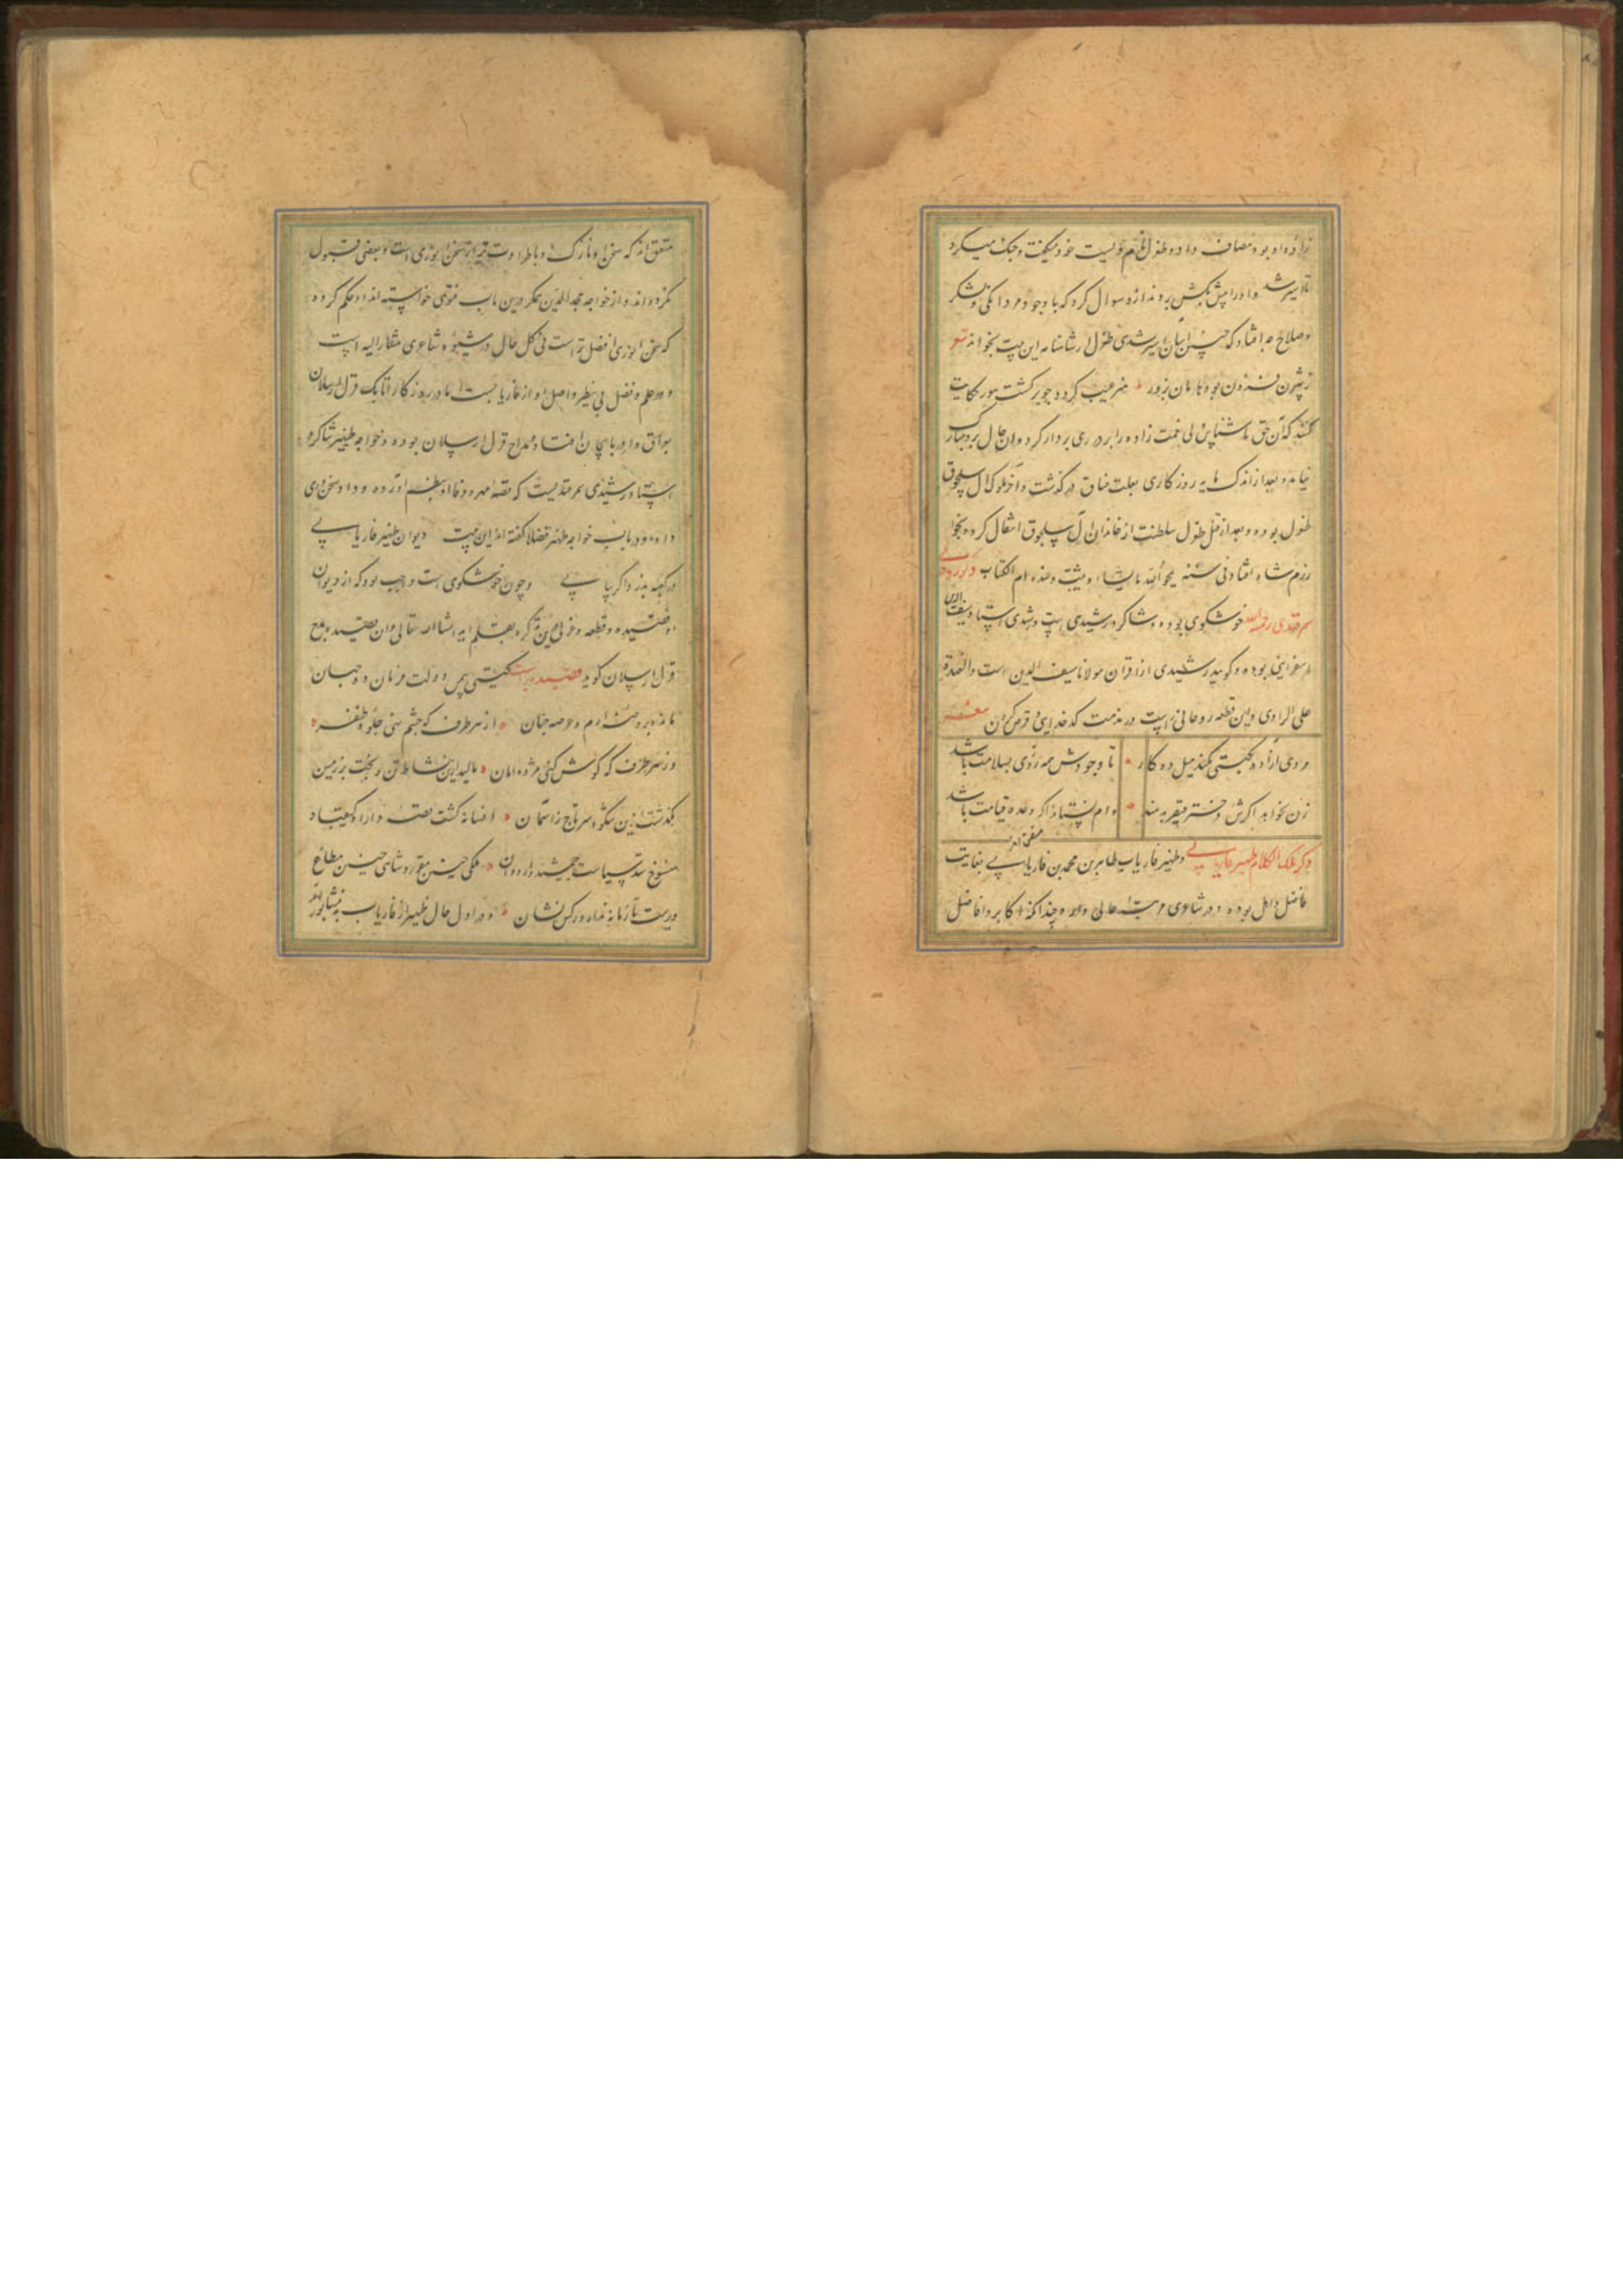 زاده او بود مصاف داد و طغرل خود میکفت و جنک میکرد
تا اسیر شد و او را پیش تکش بردند ازو سوال کرد که با وجود مردانکی و لشکر
و صلاح چه افتاد که چنین اسان اسیر شدی طغرل از شاهنامه این بیت بخواند شعر
ز بیژن فزون بود هامان بزور هنر عیب کردد چو برکشت هور حکایت
کنند که آن حق ناشناس ولی نعمت زاده را بر در ری بر دار کرد و ان حال برو مبارک
نیامد و بعد از اندک مایه روزکاری بعلت خناق درکذشت و آخر ملوک آل سلجوق
طغرل بوده و بعد از قتل طغرل سلطنت از خاندان آل سلجوق انتقال کرد و بخوا
رزم شاه افتاد فی سنه یمحو الله ما یشاء و یثبت و عنده ام الکتاب ذکر روحانی
سمرقندی رحمة الله خوشکوی بوده و شاکرد رشیدی است و رشیدی استاد سیف الدین
اسفراینی بوده و کویند رشیدی از اقران مولانا سیف الدین است و العهدة
علی الراوی و این قطعه روحانی راست در مذمت کدخدایی و قرض کردن شعر
مردی آزاده بکیتی نکند میل دو کار تا وجودش همه روزی بسلامت باشد
زن نخواهد اکرش دختر قیصر بدهند وام نستاند اکر وعده قیامت باشد
ذکر ملک الکلام ظهیر فاریابی و ظهیر فاریاب طاهر بن محمد بن فاریابی بغایت
فاضل و اهل بوده و در شاعری مرتبه عالی دارد چنانکه اکابر و افاضل
متفق اند که سخن او نازک و با طراوت تر از سخن انوری است و بعضی قبول
نکرده اند و از خواجه مجد الدین همکر درین باب فتوی خواسته اند او حکم کرده
که سخن انوری افضل است فی کل حال در شیوه شاعری مشار الیه است
و در علم و فضل بی نظیر و اصل او از فاریابست اما در روزکار اتابک قزل ارسلان
بعراق و اذربایجان افتاد و مداح قزل ارسلان بوده و خواجه ظهیر شاکرد
استاد رشیدی سمرقندیست که قصه مهر و وفا او بنظم آورده و داد سخنوری
داده و در باب خواجه ظهیر فضلا کفته اند این بیت دیوان ظهیر فاریابی
در کعبه بدزد اکر بیابی و چون خوشکوی است واجب بود که از دیوان
او قصیده و قطعه و غزلی درین تذکره بقلم اید انشا الله تعالی و ان قصیده بمدح
قزل ارسلان کوید قصیده کیتی ز یمن دولت فرمان ده جهان
ماند بروضه ارم و عرصه جنان از هر طرف که چشم نهی جلوه ظفر
وز هر طرف که کوش کنی مژده امان بالید ازین نشاط تن و تخت بر زمین
بکذشت ازین شکوه سر تاج ز اسمان افسانه کشت قصه دارا و کیقباد
منسوخ شد سیاست جمشید و اردوان ملکی چنین مقرر و شاهی چنین مطاع
دریست تا زمانه نداد و رکس نشان و در اول حال ظهیر از فاریاب به نیشابور افتاد